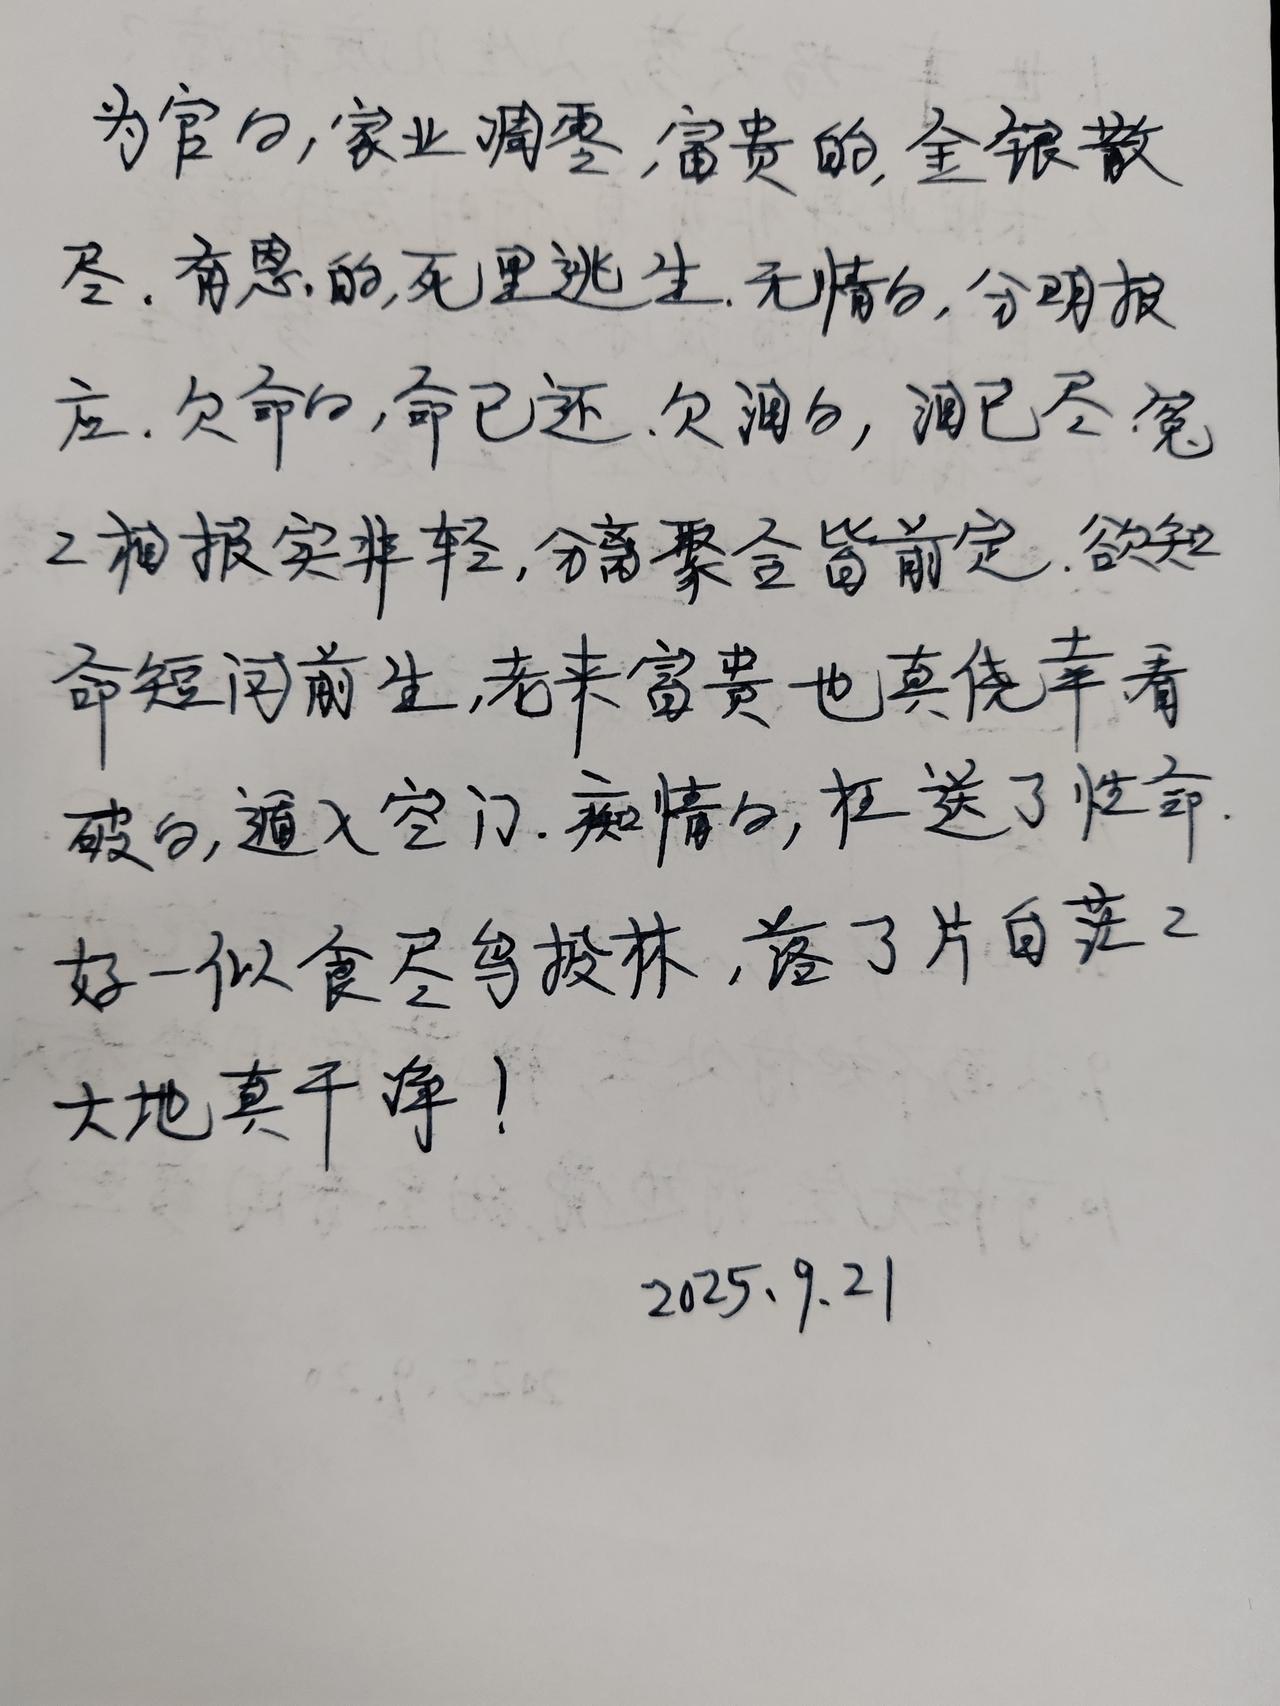 为官的,家业凋零,富贵的,金银散
尽.有恩的,死里逃生.无情的,分明报
应.欠命的,命已还.欠泪的,泪已尽.冤
冤相报实非轻,分离聚合皆前定.欲知
命短问前生,老来富贵也真侥幸看
破的,遁入空门.痴情的,枉送了性命.
好一似食尽鸟投林,落了片白茫茫
大地真干净!
2025.9.21